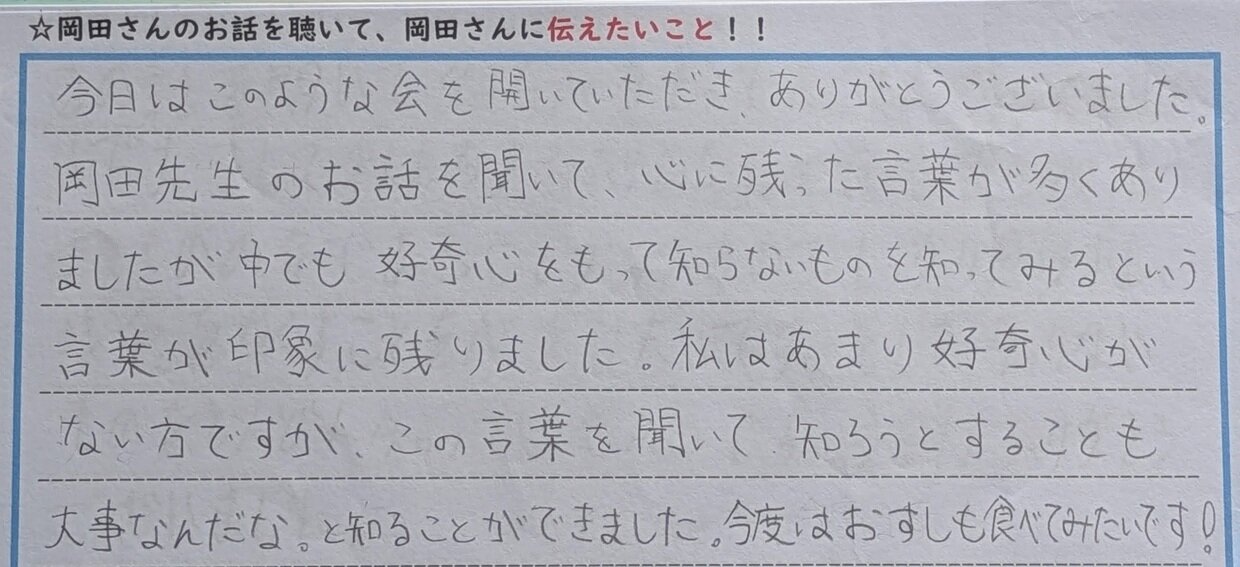 ☆岡田さんのお話を聴いて、岡田さんに伝えたいこと！！
今日はこのような会を開いていただき、ありがとうございました。
岡田先生のお話を聞いて、心に残った言葉が多くあり
ましたが中でも 好奇心をもって知らないものを知ってみるという
言葉が印象に残りました。私はあまり好奇心が
ない方ですが、この言葉を聞いて、知ろうとすることも
大事なんだな。と知ることができました。今度はおすしも食べてみたいです!